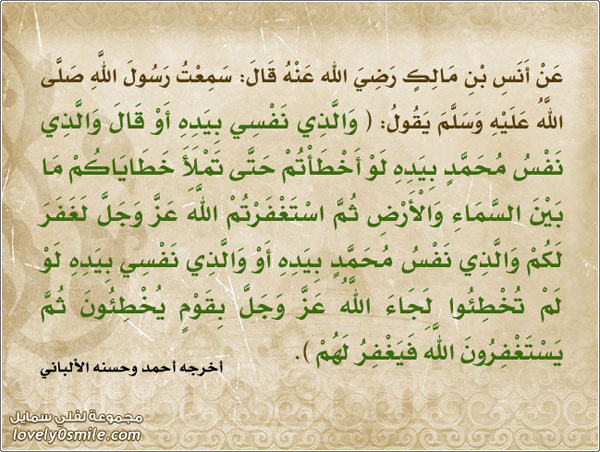 عَنْ أَنَسِ بْنِ مَالِكٍ رَضِيَ الله عَنْهُ قَالَ: سَمِعْتُ رَسُولَ اللَّهِ صَلَّى
اللَّهُ عَلَيْهِ وَسَلَّمَ يَقُولُ: ( وَالَّذِي نَفْسِي بِيَدِهِ أَوْ قَالَ وَالَّذِي
نَفْسُ مُحَمَّدٍ بِيَدِهِ لَوْ أَخْطَأْتُمْ حَتَّى تَمْلَأَ خَطَايَاكُمْ مَا
بَيْنَ السَّمَاءِ وَالْأَرْضِ ثُمَّ اسْتَغْفَرْتُمْ اللَّهَ عَزَّ وَجَلَّ لَغَفَرَ
لَكُمْ وَالَّذِي نَفْسُ مُحَمَّدٍ بِيَدِهِ أَوْ وَالَّذِي نَفْسِي بِيَدِهِ لَوْ
لَمْ تُخْطِئُوا لَجَاءَ اللَّهُ عَزَّ وَجَلَّ بِقَوْمٍ يُخْطِئُونَ ثُمَّ
يَسْتَغْفِرُونَ اللَّهَ فَيَغْفِرُ لَهُمْ ).
أخرجه أحمد وحسنه الألباني
مجموعة لفلي سمايل
lovely0smile.com